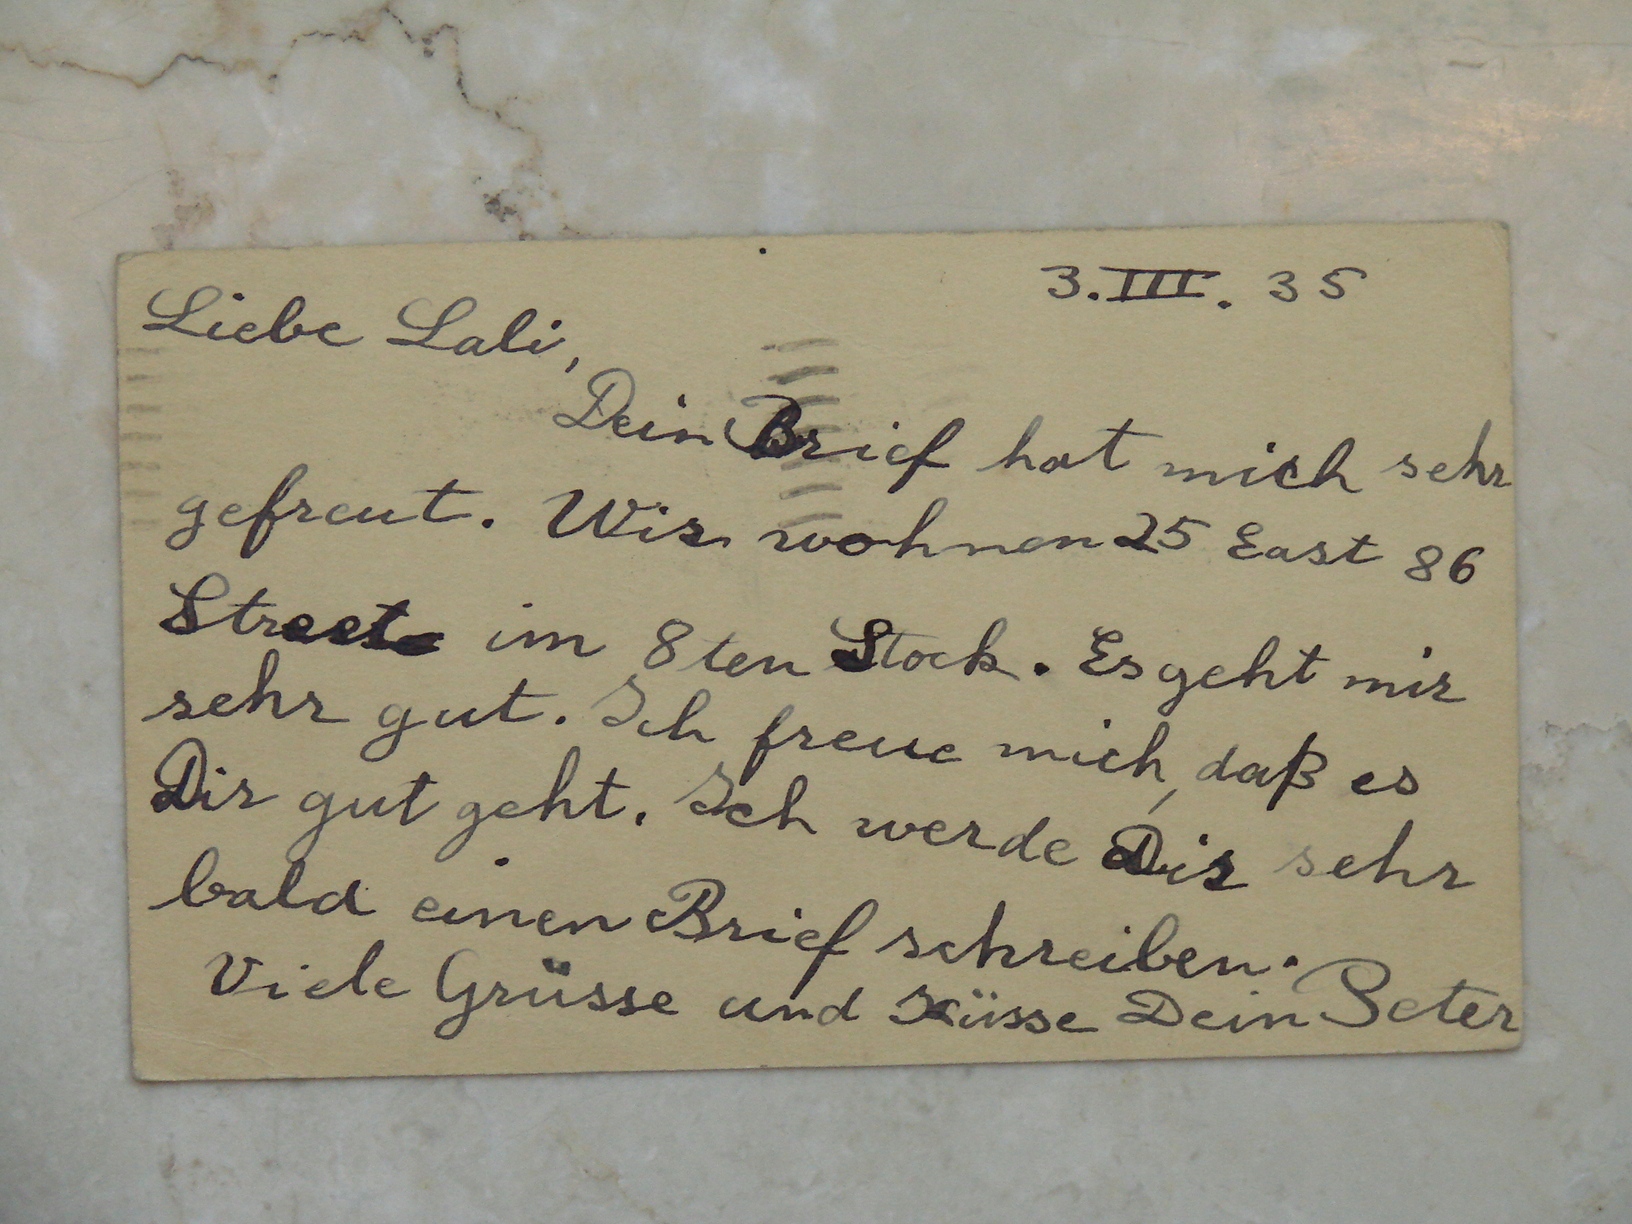 3.III.35
Liebe Lali,
Dein Brief hat mich sehr
gefreut. Wir wohnen 25 East 86
Street im 8ten Stock. Es geht mir
sehr gut. Ich freue mich, daß es
Dir gut geht. Ich werde Dir sehr
bald einen Brief schreiben.
Viele Grüsse und Küsse Dein Peter